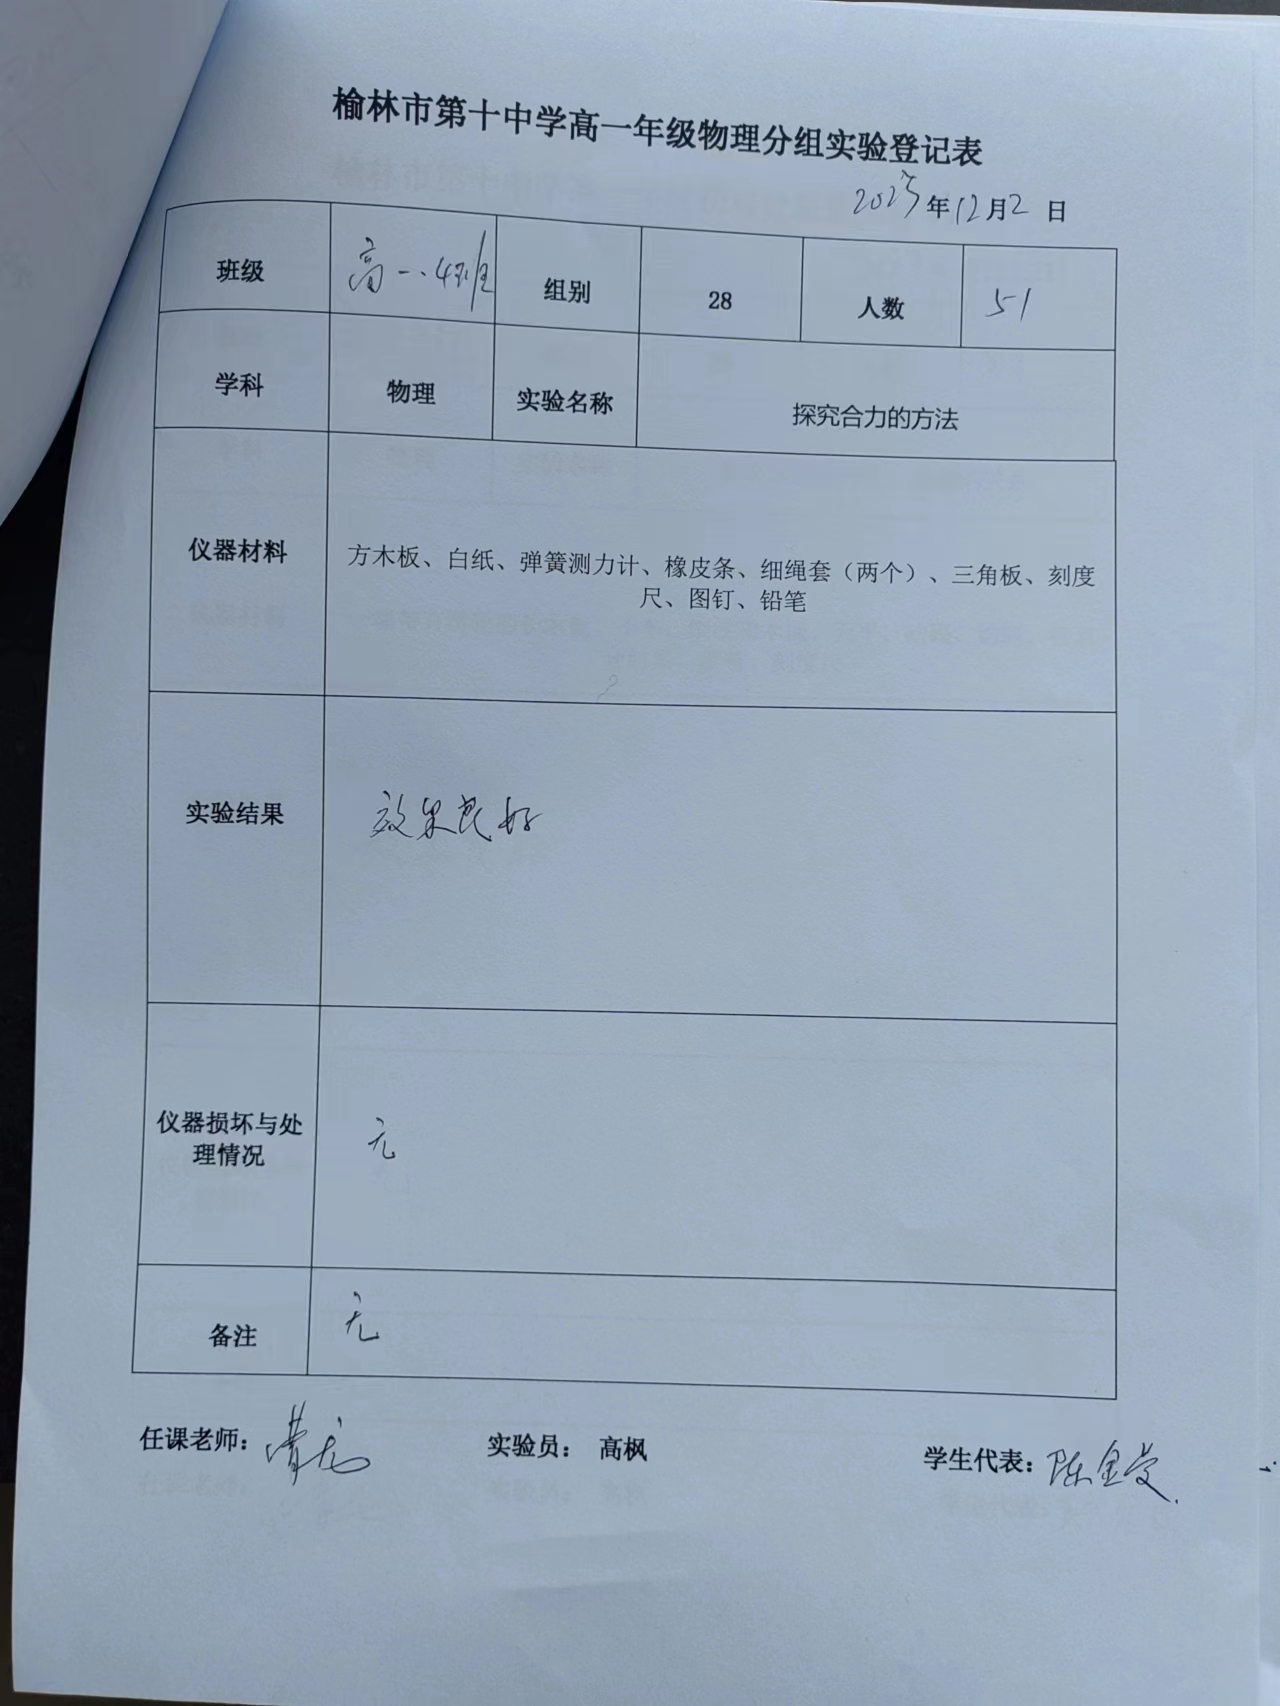 榆林市第十中学高一年级物理分组实验登记表
年12月2日
班级 高一.4班 组别 28 人数 51
学科 物理 实验名称 探究合力的方法
仪器材料 方木板、白纸、弹簧测力计、橡皮条、细绳套（两个）、三角板、刻度
尺、图钉、铅笔
实验结果 效果良好
仪器损坏与处
理情况
无
备注 无
任课老师： 实验员： 高枫 学生代表：陈